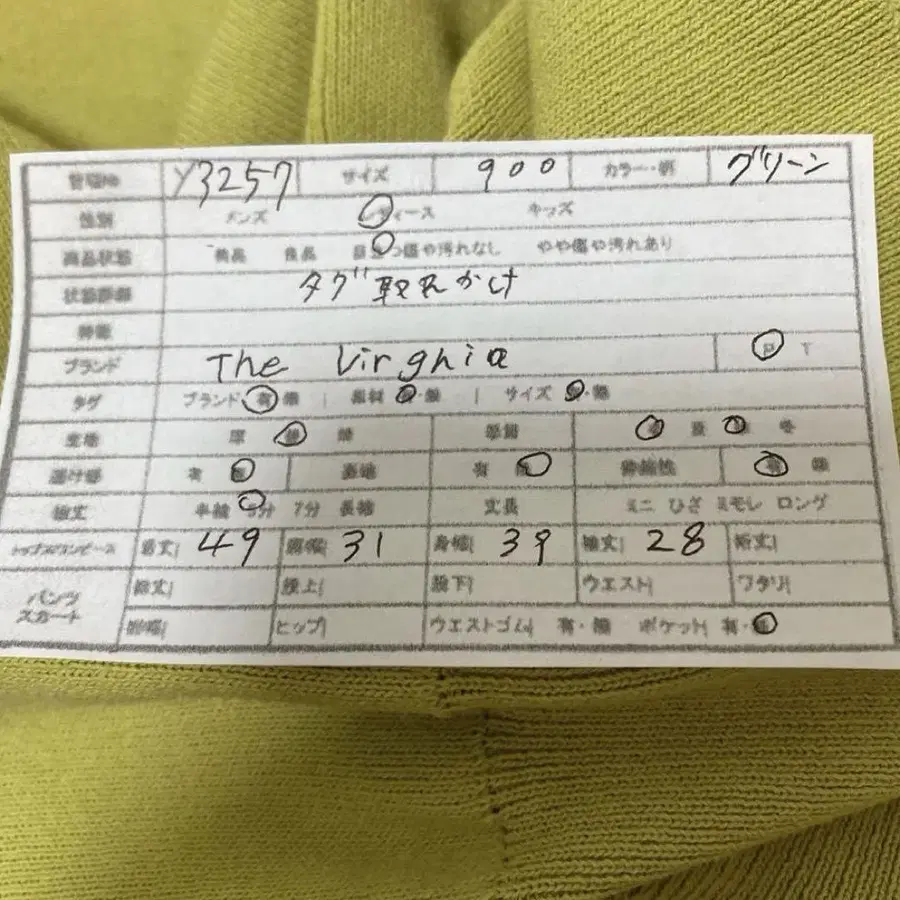 管理No Y3257 サイズ 900 カラー・柄 グリーン
性別 メンズ レディース キッズ
商品状態 美品 良品 目立つ傷や汚れなし やや傷や汚れあり
状態詳細 タグ取れかけ
特徴
ブランド The Virghia P T
タグ ブランド 有・無 | 素材 有・無 | サイズ 有・無
生地 厚 普 薄 季節 春 夏 秋 冬
透け感 有 無 裏地 有 無 伸縮性 有 無
袖丈 半袖 5分 7分 長袖 丈長 ミニ ひざ ミモレ ロング
トップス/ワンピース 着丈| 49 肩幅| 31 身幅| 39 袖丈| 28 裄丈|
パンツ スカート 総丈| 股上| 股下| ウエスト| ワタリ|
裾幅| ヒップ| ウエストゴム| 有・無 ポケット| 有・無